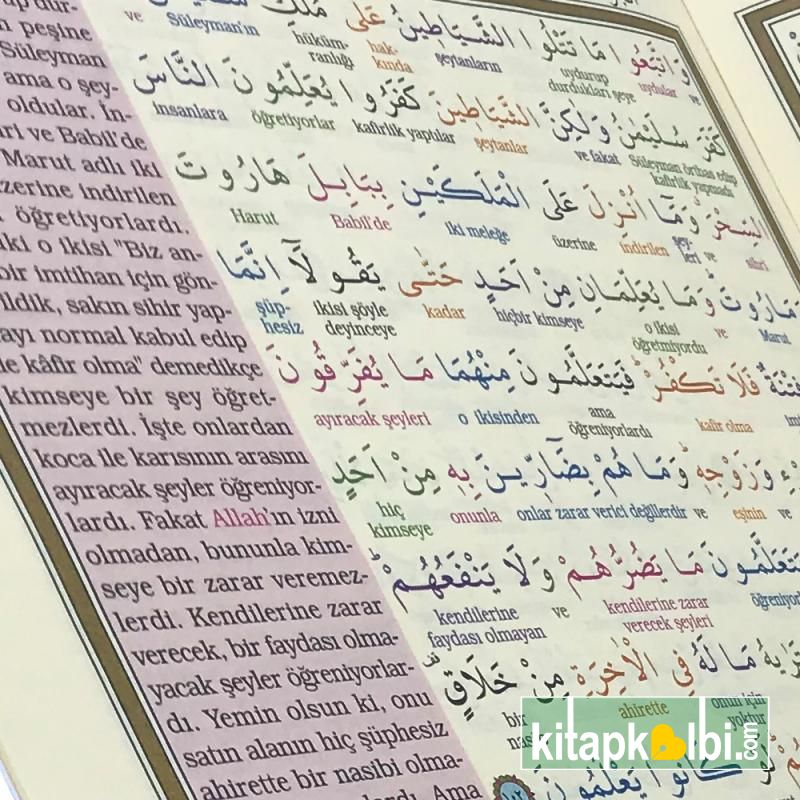 peşine
Süleyman
ama o şey-
oldular. İn-
ri ve Babil'de
Marut adlı iki
zerine indirilen
öğretiyorlardı.
ki o ikisi "Biz an-
bir imtihan için gön-
ildik, sakın sihir yap-
ayı normal kabul edip
le kâfir olma" demedikçe
kimseye bir şey öğret-
mezlerdi. İşte onlardan
koca ile karısının arasını
ayıracak şeyler öğreniyor-
lardı. Fakat Allah'ın izni
olmadan, bununla kim-
seye bir zarar veremez-
lerdi. Kendilerine zarar
verecek, bir faydası olma-
yacak şeyler öğreniyorlar-
dı. Yemin olsun ki, onu
satın alanın hiç şüphesiz
ahirette bir nasibi olma-
Ama
وَاتَّبَعُوا مَا تَتْلُوا الشَّيَاطِينُ عَلٰى مُلْكِ
ve uydular uydurup durdukları şeye şeytanların hakkında hüküm-ranlığı Süleyman'ın ve
كَفَرَ سُلَيْمٰنُ وَلٰكِنَّ الشَّيَاطِينَ كَفَرُوا يُعَلِّمُونَ النَّاسَ
Süleyman örtbas edip kafirlik yapmadı ve fakat şeytanlar kafirlik yaptılar öğretiyorlar insanlara
السِّحْرَ وَمَٓا اُنْزِلَ عَلَى الْمَلَكَيْنِ بِبَابِلَ هَارُوتَ
sihri ve şey-leri indirilen üzerine iki meleğe Babil'de Harut
مَارُوتَ وَمَا يُعَلِّمَانِ مِنْ اَحَدٍ حَتّٰى يَقُولَٓا اِنَّمَا
Marut ve o ikisi öğretmiyordu hiçbir kimseye kadar ikisi şöyle deyinceye şüp-hesiz
فِتْنَةٌ فَلَا تَكْفُرْ فَيَتَعَلَّمُونَ مِنْهُمَا مَا يُفَرِّقُونَ
kafir olma ama öğreniyorlardı o ikisinden ayıracak şeyleri
وَزَوْجِهِ وَمَا هُمْ بِضَٓارِّينَ بِهِ مِنْ اَحَدٍ
ve eşinin ve onlar zarar verici değillerdir onunla hiç kimseye
مَا يَضُرُّهُمْ وَلَا يَنْفَعُهُمْ
kendilerine zarar verecek şeyleri ve kendilerine faydası olmayan
مَا لَهُ فِي الْاٰخِرَةِ مِنْ خَلَاقٍ
onun için yoktur ahirette bir
لَوْ كَانُوا يَعْلَمُونَ
١٠٢
kitapkalbi.com